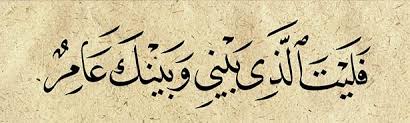 فَلَيْتَ الَّذِي بَيْنِي وَبَيْنَكَ عَامِرٌ